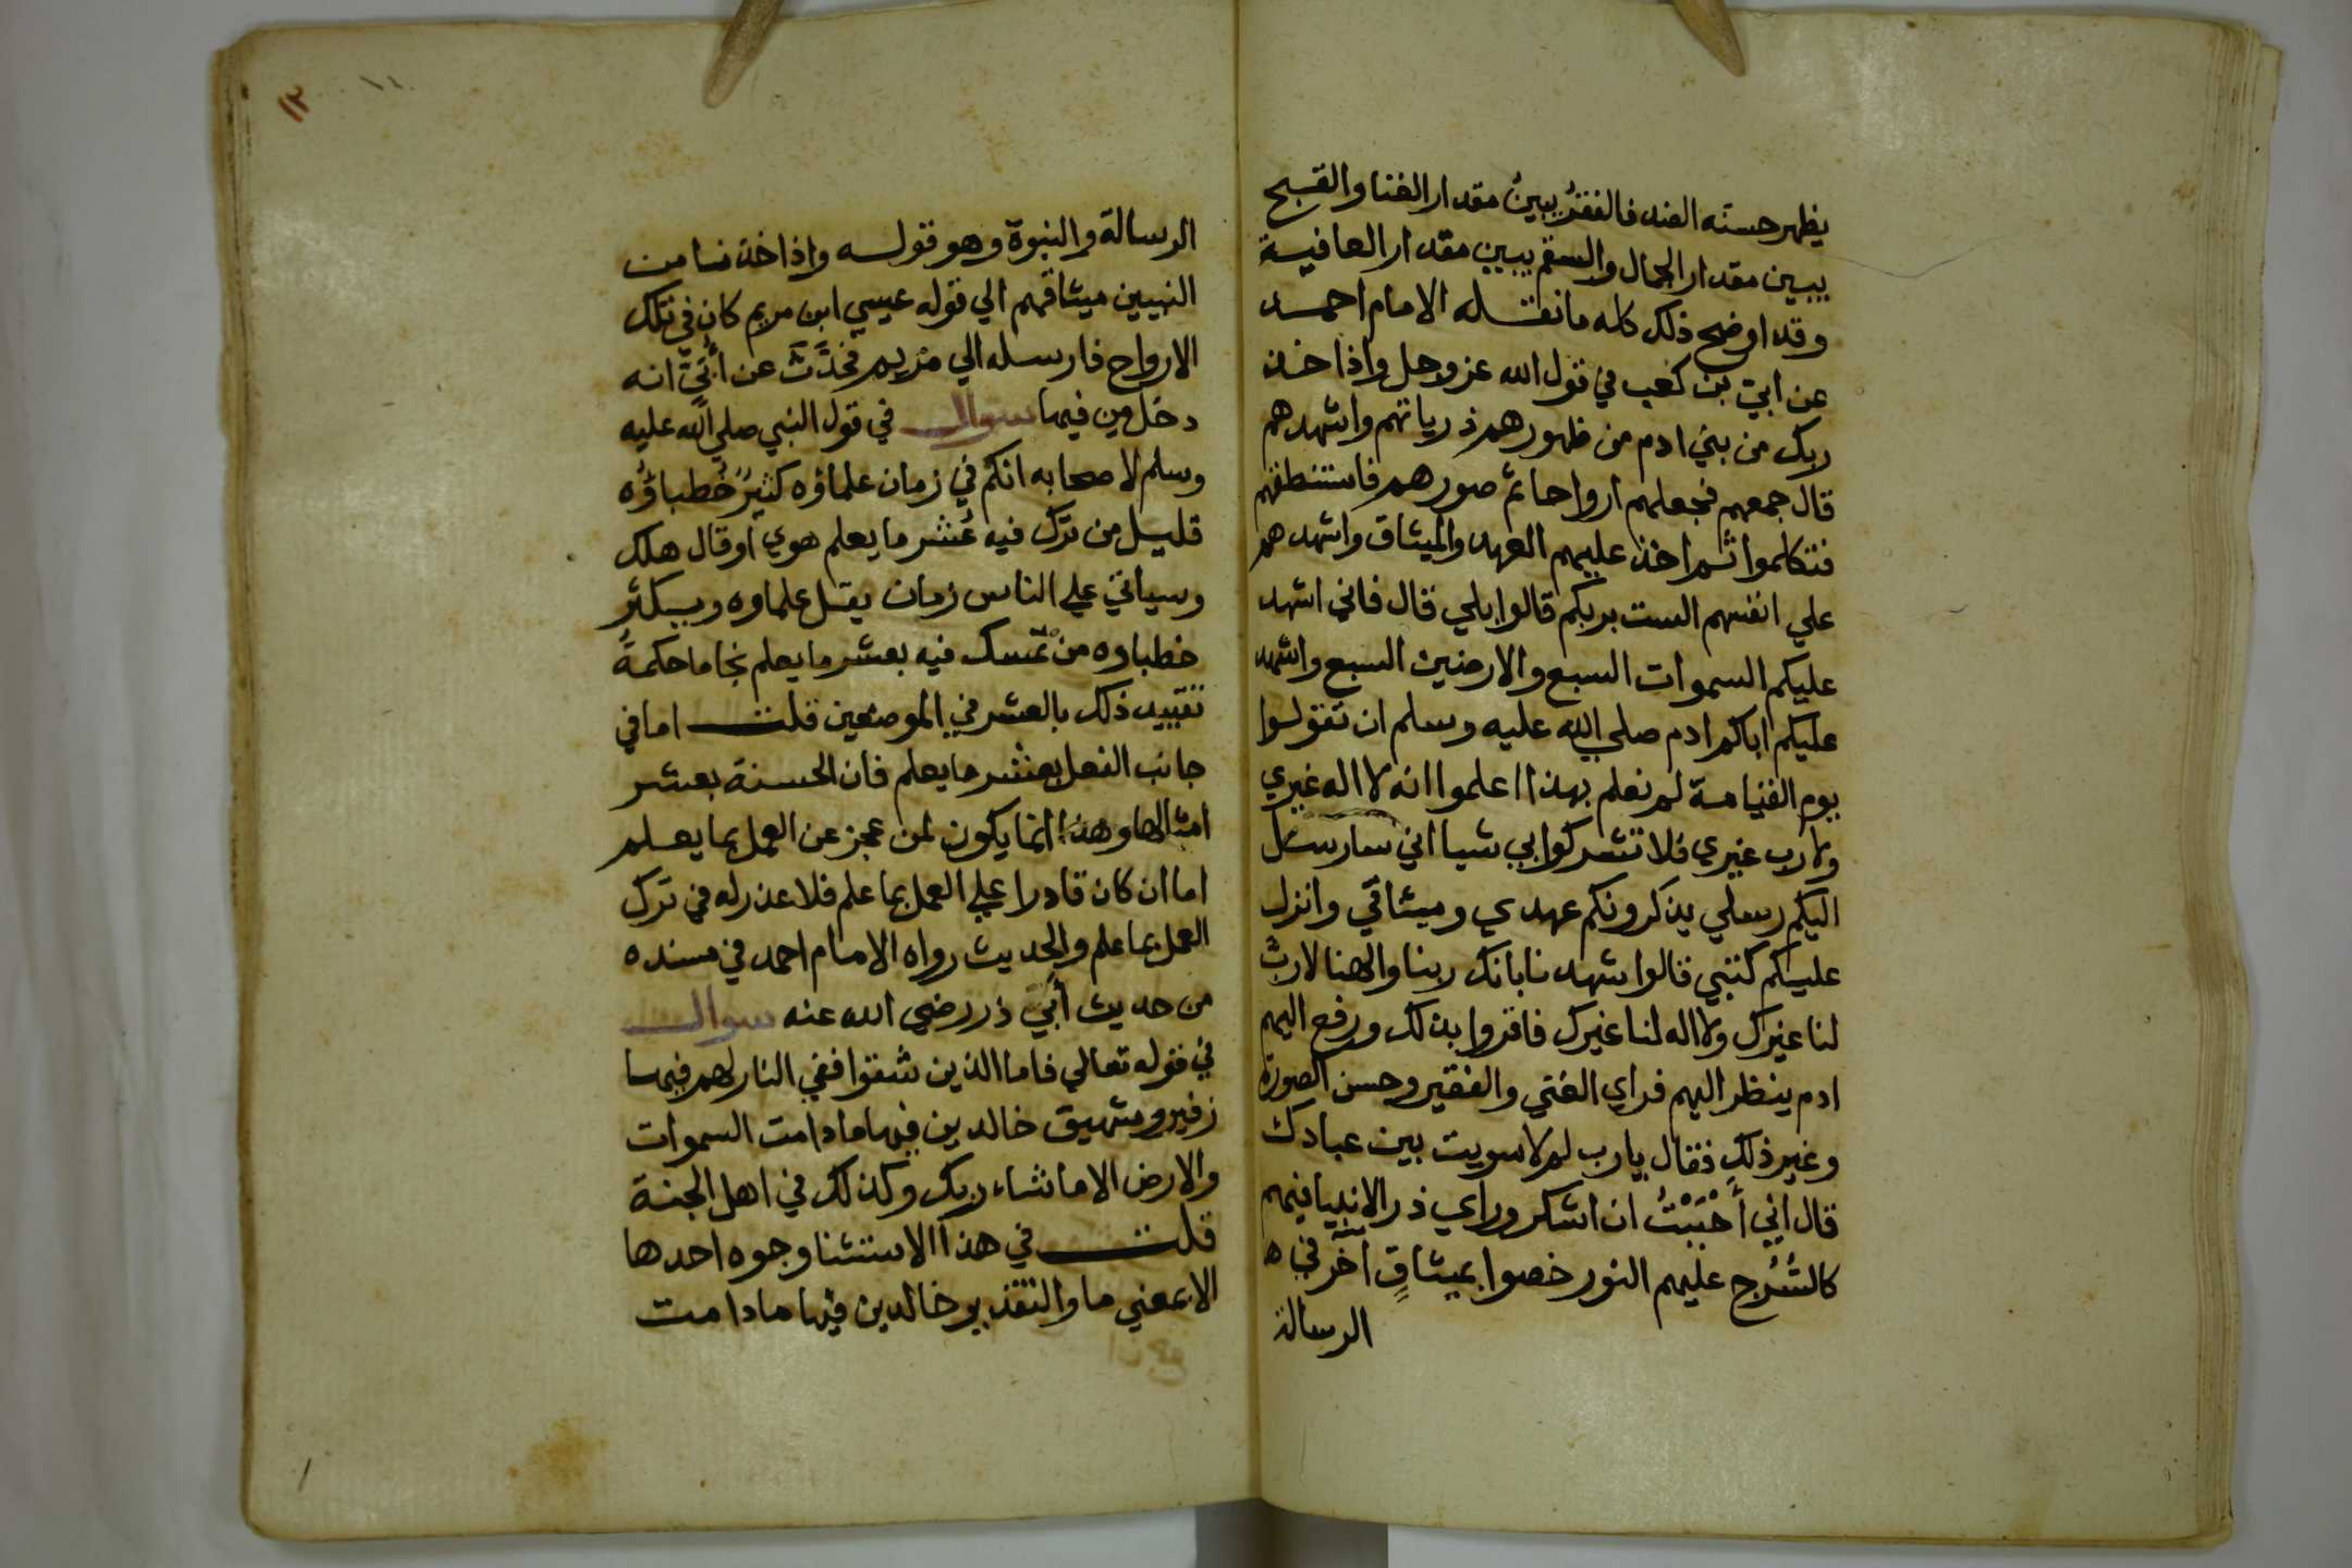 يظهر حسنه الضد فالفقرُ يبينُ مقدار الغنا والقبيح
يبين مقدار الجمال والسقم يبين مقدار العافية
وقد اوضح ذلك كله ما نقله الامام احمد
عن ابيّ بن كعب في قول الله عز وجل واذ اخذ
ربك من بني ادم من ظهورهم ذرياتهم واشهدهم
قال جمعهم فجعلهم ارواحا ثم صورهم فاستنطقهم
فتكلموا ثم اخذ عليهم العهد والميثاق واشهدهم
علي انفسهم الست بربكم قالوا بلي قال فاني اشهد
عليكم السموات السبع والارضين السبع واشهد
عليكم اباكم ادم صلي الله عليه وسلم ان تقولوا
يوم القيامة لم نعلم بهذا اعلموا انه لا اله غيري
ولا رب غيري فلا تشركوا بي شيا اني سارسل
اليكم رسلي يذكرونكم عهدي وميثاقي وانزل
عليكم كتبي قالوا شهدنا بانك ربنا والهنا لا ربّ
لنا غيرك ولا اله لنا غيرك فاقروا بذلك ورفع اليهم
ادم ينظر اليهم فراي الغني والفقير وحسن الصورة
وغير ذلك فقال يا رب لولا سويت بين عبادك
قال اني أحْبَبْتُ ان اشكر وراي ذر الانبيا فيهم
كالسُّرُج عليهم النور خصوا بميثاقٍ اخر في
الرسالة
١٢
الرسالة والنبوة وهو قوله واذ اخذنا من
النبيين ميثاقهم الي قوله عيسي ابن مريم كان في تلك
الارواح فارسله الي مريم فحَدَّثَ عن أُبَيّ انه
دخل من فيها سوال في قول النبي صلي الله عليه
وسلم لاصحابه انكم في زمان علماؤه كثيرٌ خُطباؤُه
قليل من ترك فيه عُشر ما يعلم هوي او قال هلك
وسياتي علي الناس زمان يقل علماوه ويكثر
خطباوه من تمسك فيه بعشر ما يعلم نجا ما حكمةُ
تقييد ذلك بالعشر في الموضعين قلت اما في
جانب الفعل بعشر ما يعلم فان الحسنة بعشر
امثالها وهذا انما يكون لمن عجز عن العمل بما يعلم
اما ان كان قادرا علي العمل بما علم فلا عذر له في ترك
العمل بما علم والحديث رواه الامام احمد في مسنده
من حديث أبي ذر رضي الله عنه سوال
في قوله تعالي فاما الذين شقوا ففي النار لهم فيها
زفير وشهيق خالدين فيها ما دامت السموات
والارض الا ما شاء ربك وكذلك في اهل الجنة
قلت في هذا الاستثنا وجوه احدها
الا بمعني ما والتقدير خالدين فيها ما دامت